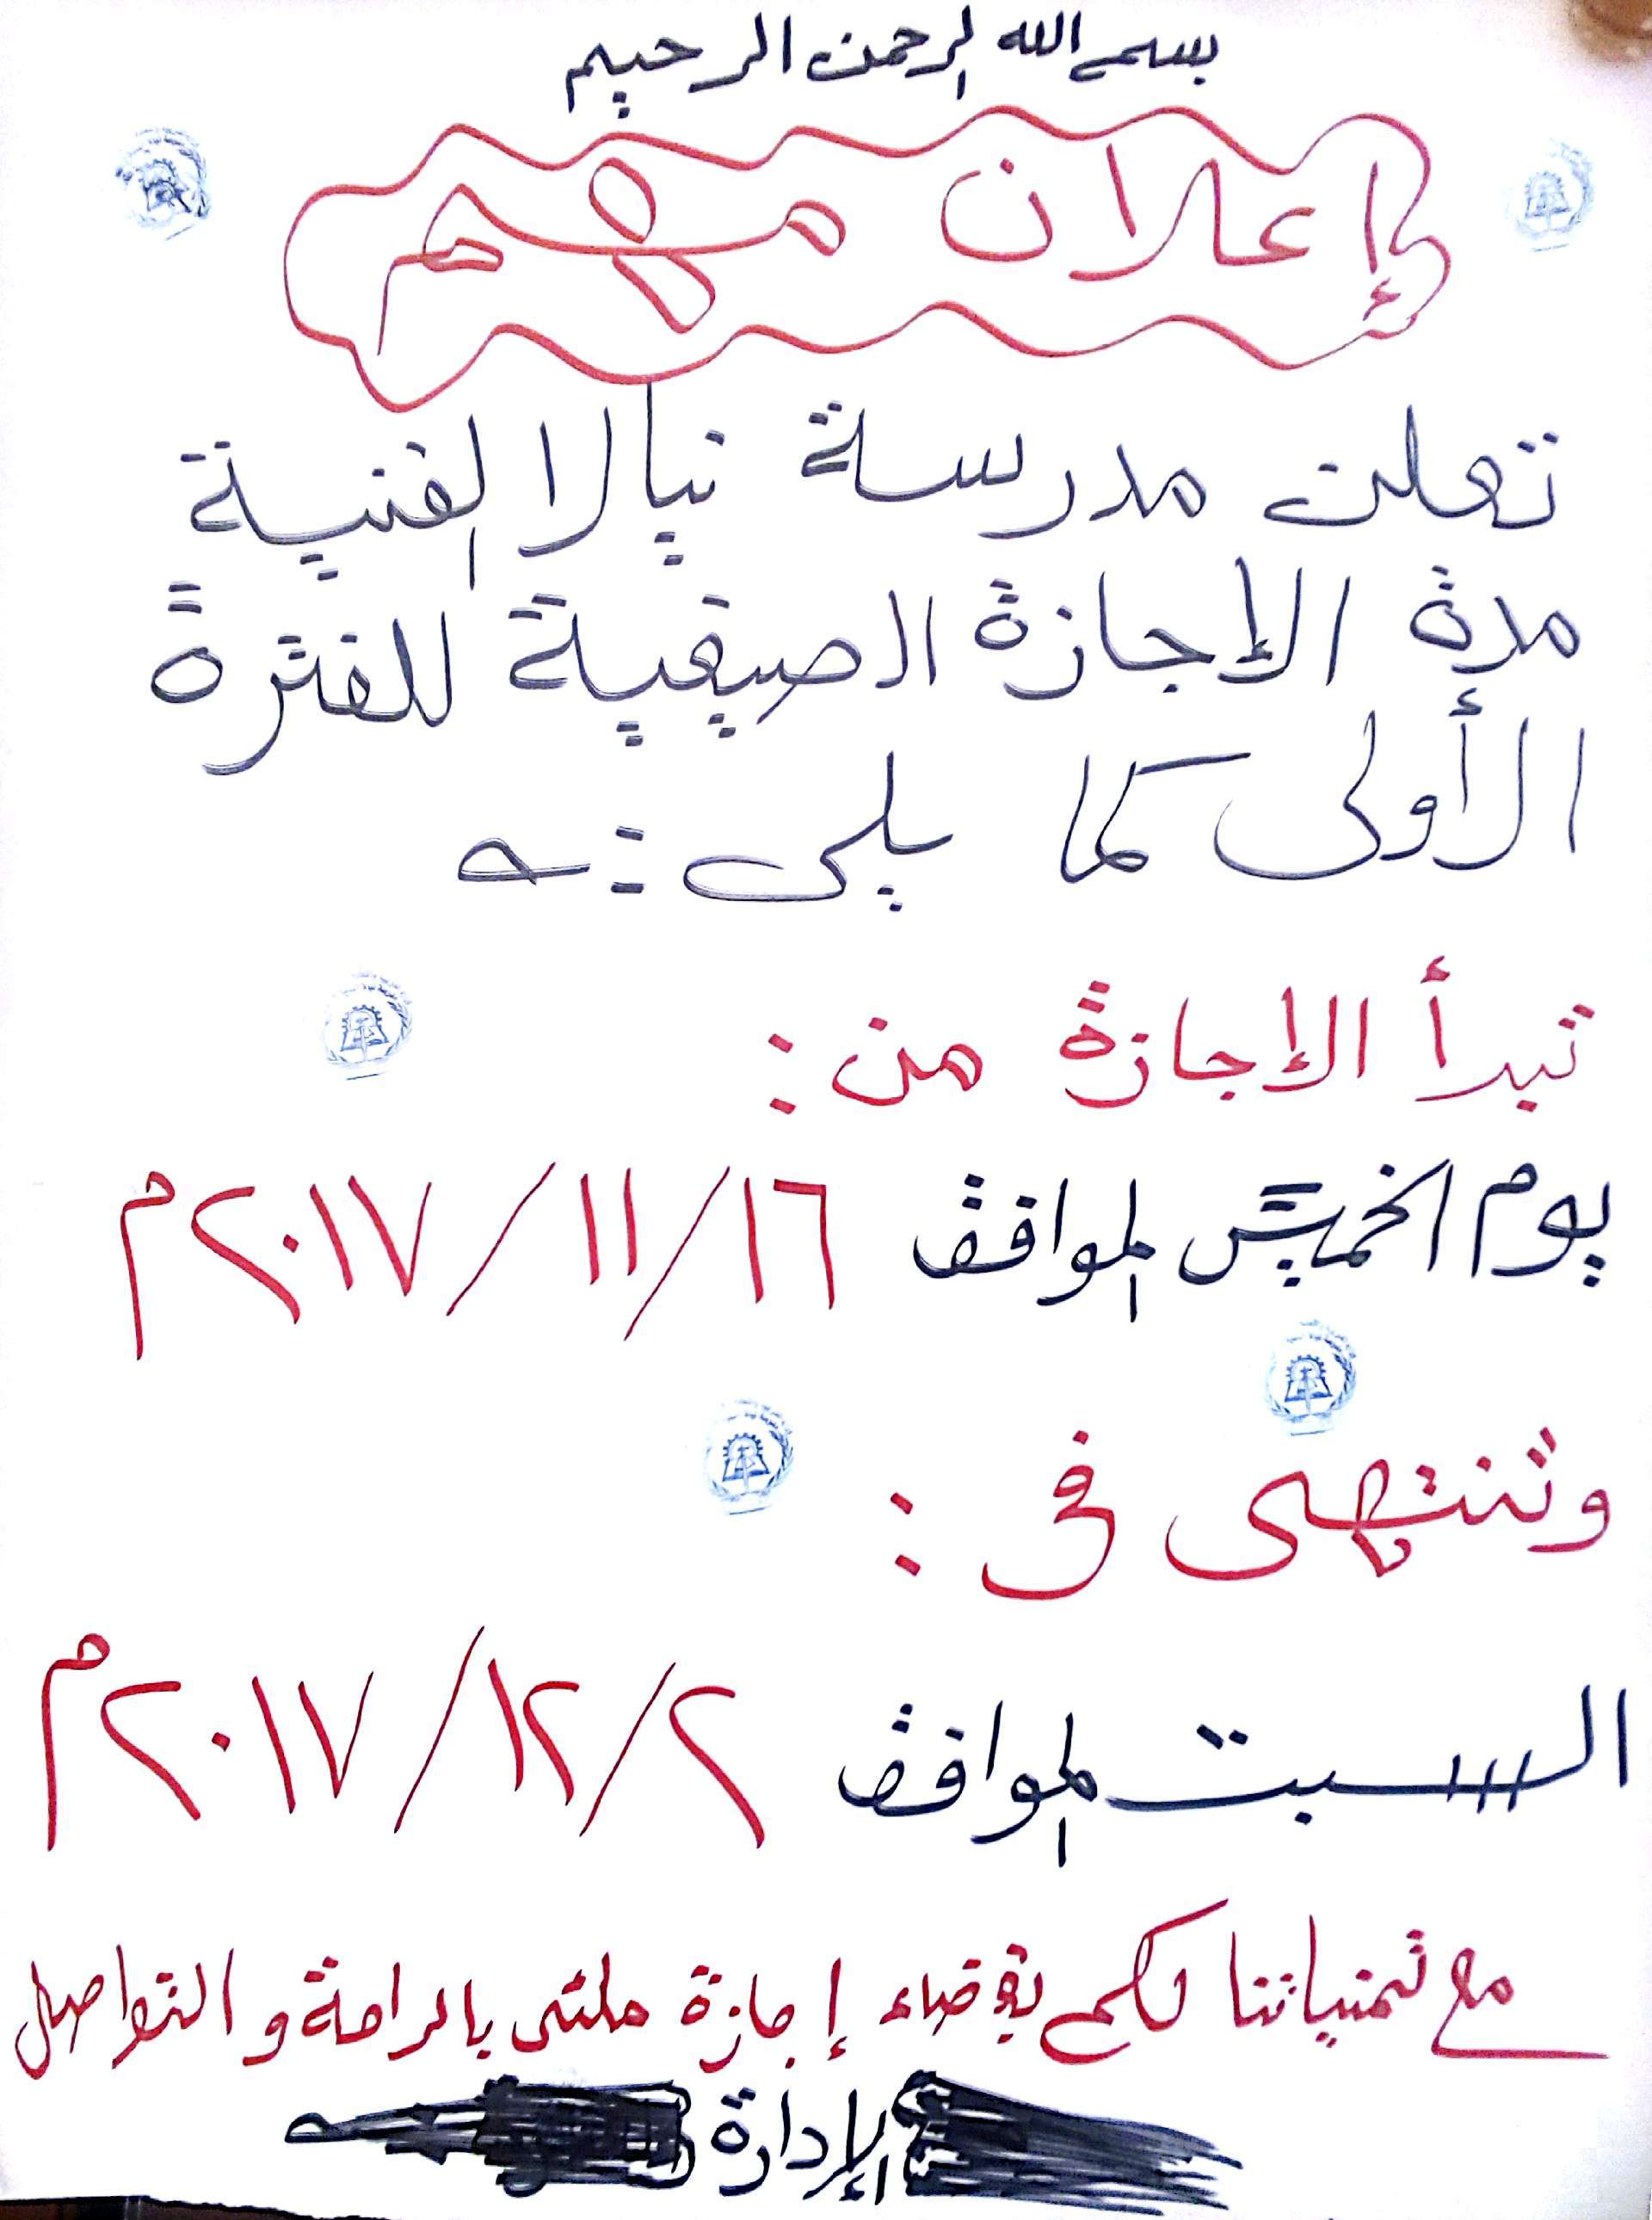 بسم الله الرحمن الرحيم
إعلان مهم
تعلن مدرسة نيالا الفنية
مدة الإجازة الصيفية للفترة
الأولى كما يلى :-
تبدأ الإجازة من :
يوم الخميس الموافق ١٦/١١/٢٠١٧م
وتنتهى فى :
السبت الموافق ٢/١٢/٢٠١٧م
مع تمنياتنا لكم بقضاء إجازة ملئى بالراحة والتواصل
الإدارة